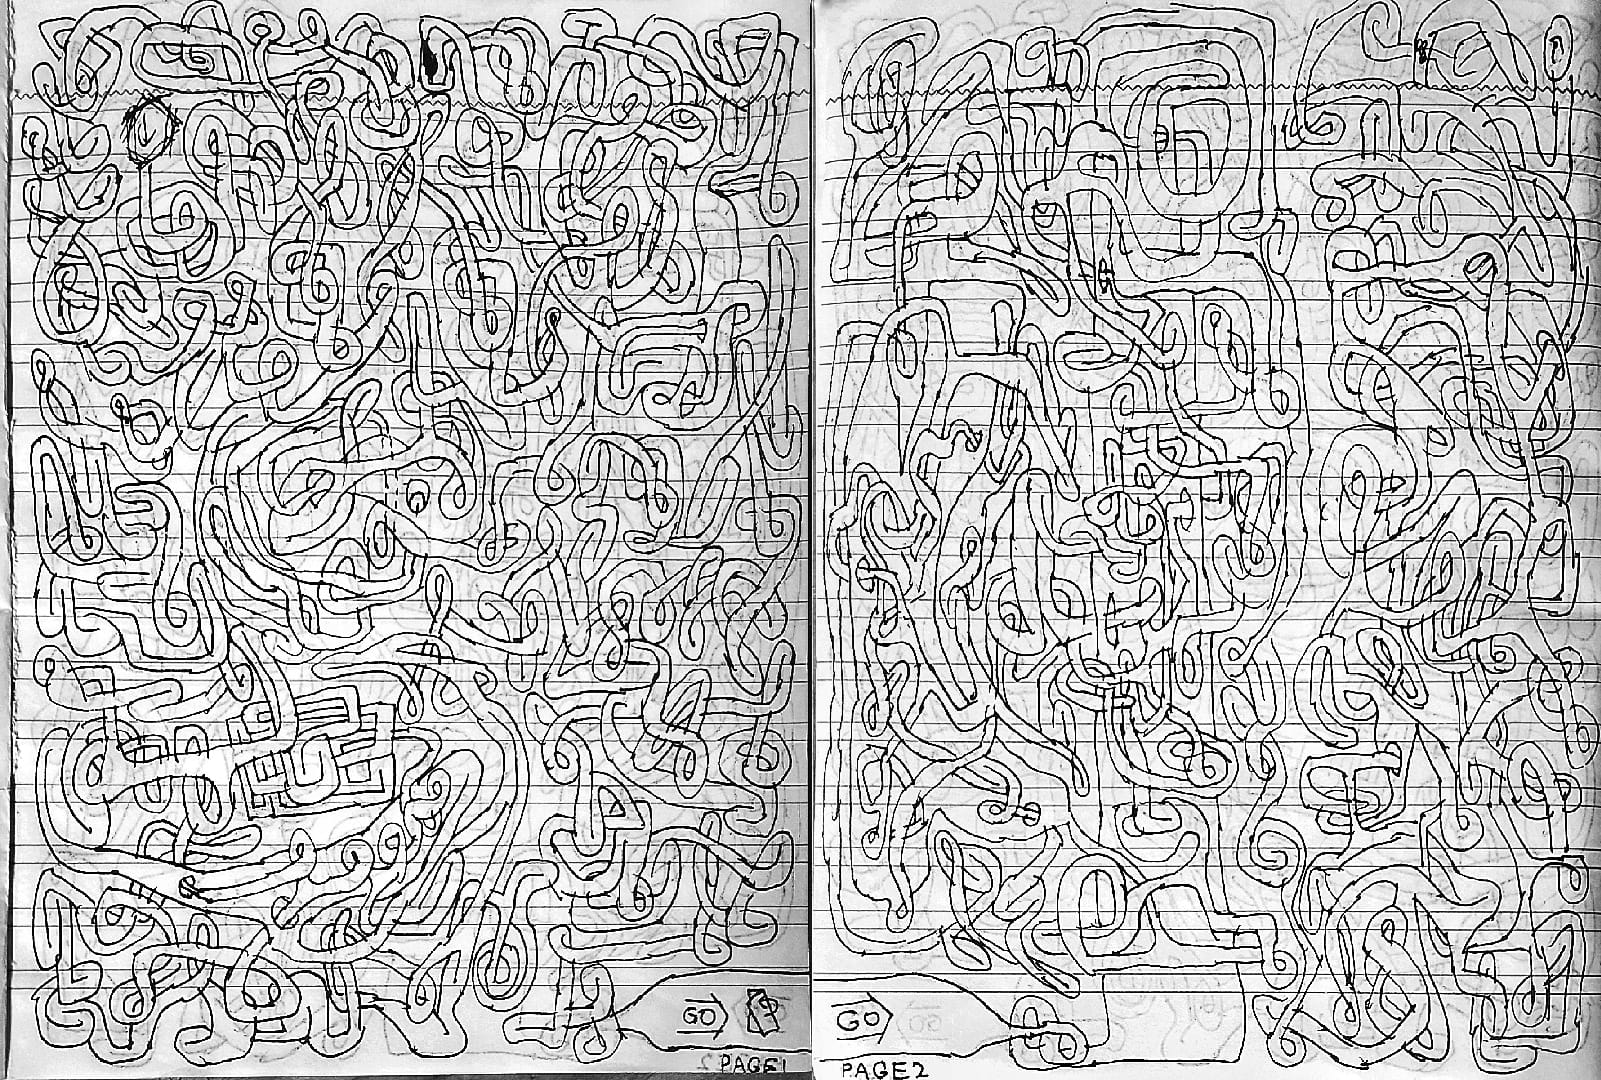 GO
PAGE1
GO
PAGE2